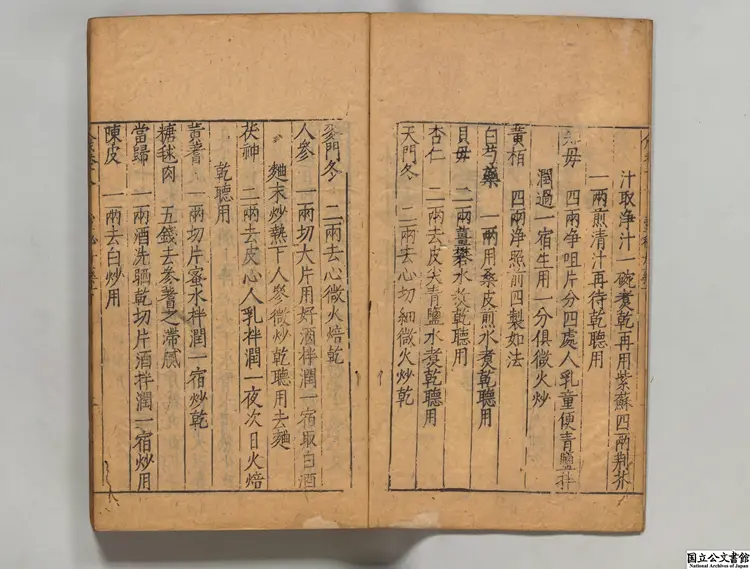 汁取淨汁一碗煮乾再用紫蘇四兩荆芥
一兩煎清汁再待乾聽用
知母 四兩净咀片分四處人乳童便青鹽拌
潤過一宿生用一分俱微火炒
黃栢 四兩净照前四製如法
白芍藥 一兩用桑皮煎水煮乾聽用
貝母 二兩薑礬水煮乾聽用
杏仁 二兩去皮尖青鹽水煮乾聽用
天門冬 二兩去心切細微火炒乾
麥門冬 二兩去心微火焙乾
人參 一兩切大片用好酒拌潤一宿取白酒
麯末炒熱下人參微炒乾聽用去麵
茯神 二兩去皮心人乳拌潤一夜次日火焙
乾聽用
黃耆 一兩切片蜜水拌潤一宿炒乾
糖毬肉 五錢去參耆之滯膩
當歸 一兩酒洗晒乾切片酒拌潤一宿炒用
陳皮 一兩去白炒用
国立公文書館
National Archives of Japan